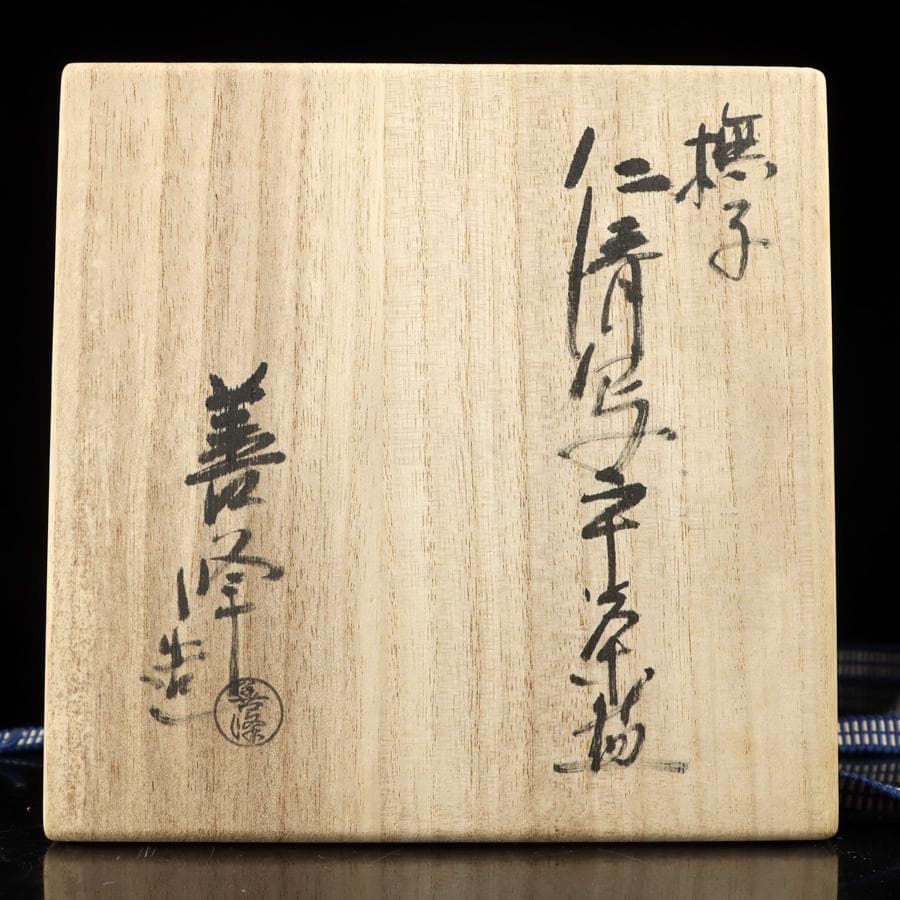 撫子
仁清写平茶碗
善峰造